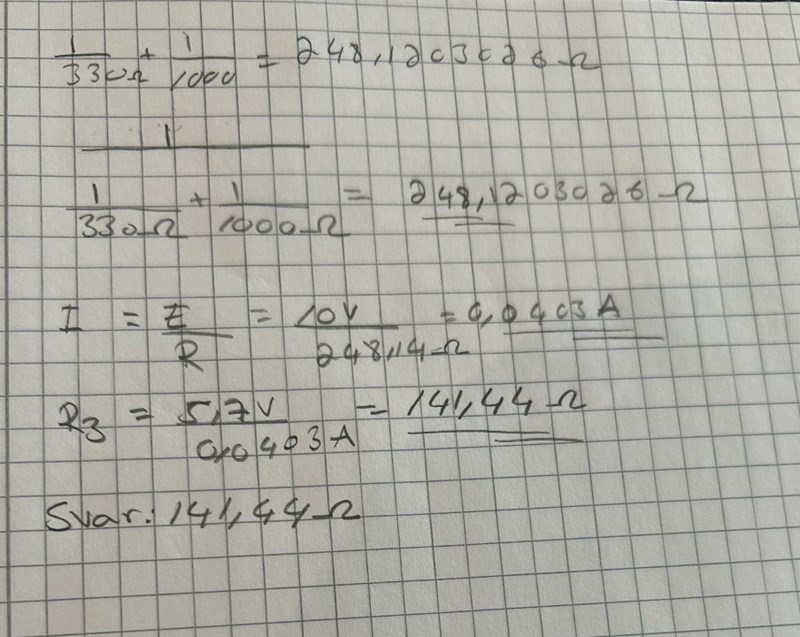 1/330Ω + 1/1000 = 248,1203026 Ω
1
1/330Ω + 1/1000Ω = 248,1203026 Ω
I = E/R = 10V/248,14Ω = 0,0403 A
R3 = 5,7V/0,0403A = 141,44 Ω
Svar: 141,44 Ω